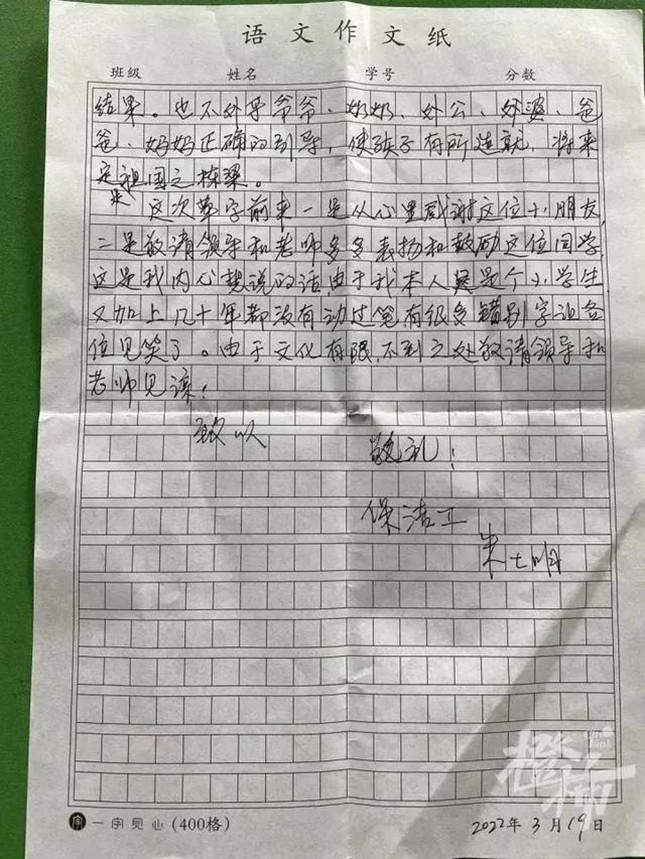 语文作文纸
班级 姓名 学号 分数
结果。也不外乎爷爷、奶奶、外公、外婆、爸
爸、妈妈正确的引导，使孩子有所造就，将来
定是祖国之栋梁。
这次草字前来一是从心里感谢这位小朋友，
二是敬请领导和老师多多表扬和鼓励这位同学，
这是我内心想说的话，由于我本人是个小学生
又加上几十年都没有动过笔，有很多错别字让各
位见笑了。由于文化有限，不到之处敬请领导和
老师见谅！
致以 敬礼！
保洁工
朱七明
一字见心(400格) 2022年3月19日
橙柿